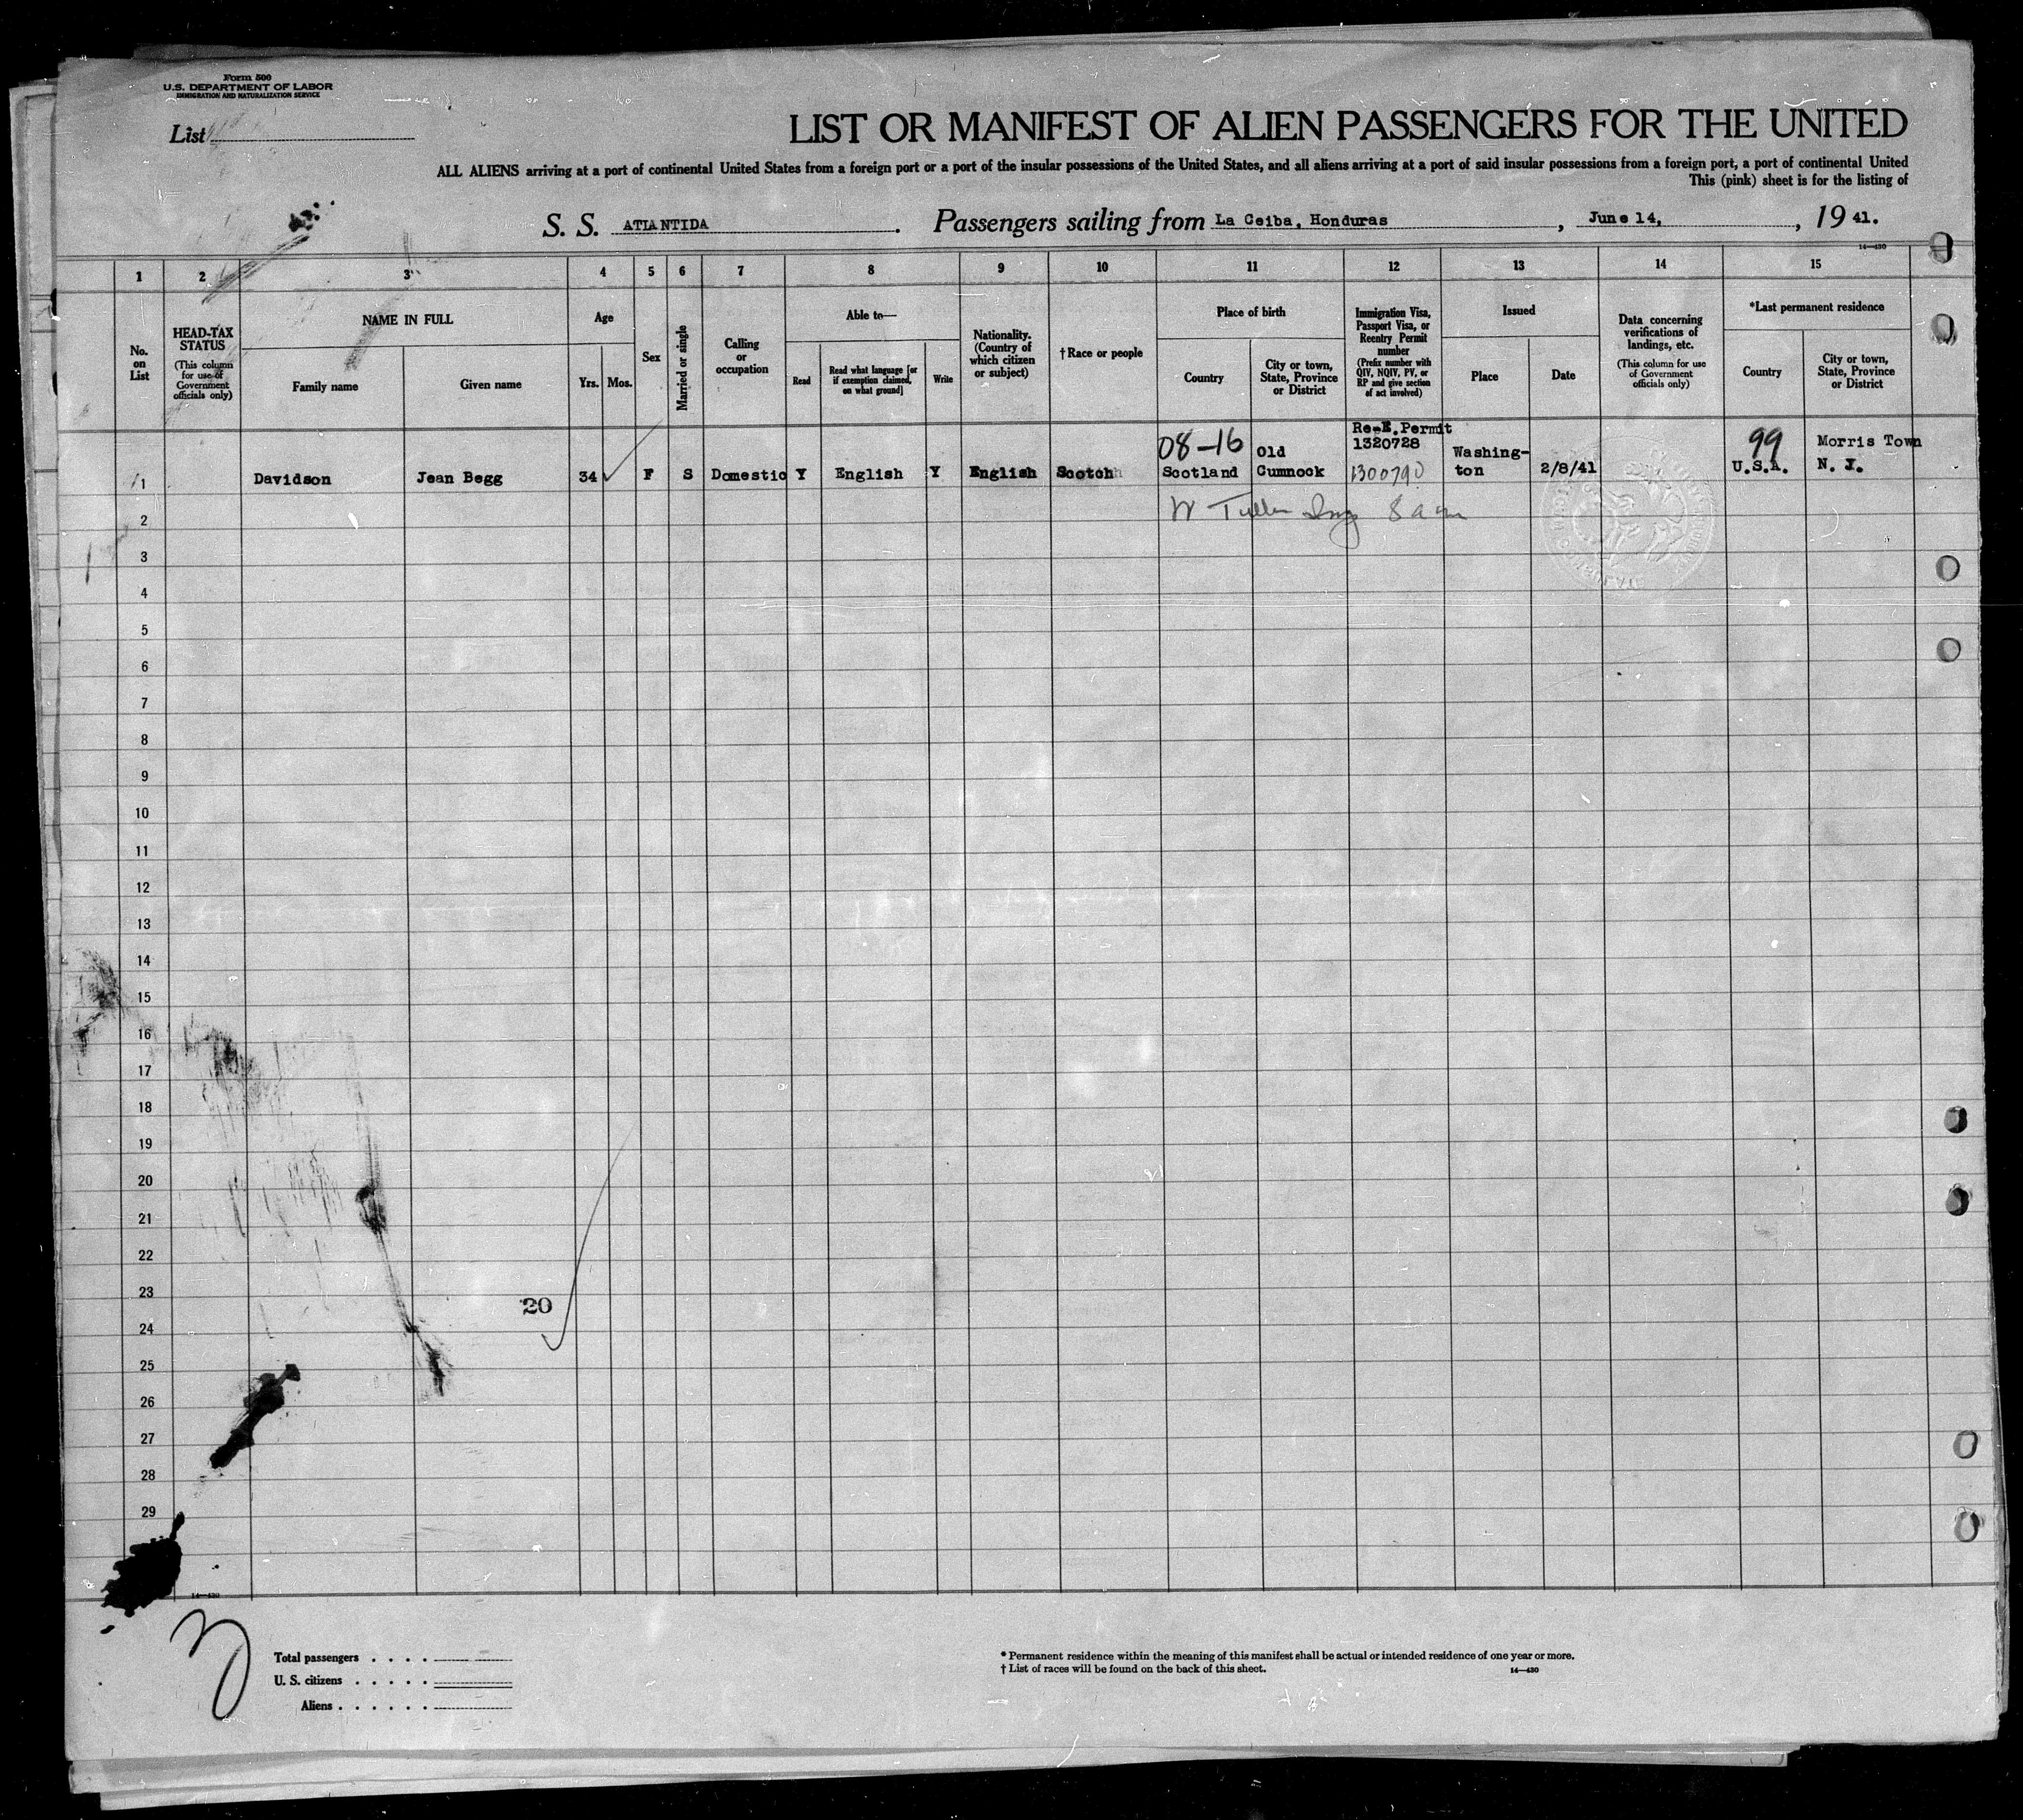 Form 500
U.S. DEPARTMENT OF LABOR
IMMIGRATION AND NATURALIZATION SERVICE
List
LIST OR MANIFEST OF ALIEN PASSENGERS FOR THE UNITED
ALL ALIENS arriving at a port of continental United States from a foreign port or a port of the insular possessions of the United States, and all aliens arriving at a port of said insular possessions from a foreign port, a port of continental United
This (pink) sheet is for the listing of
S. S. ATLANTIDA. Passengers sailing from La Ceiba, Honduras, June 14, , 19 41.
14—430
1 2 3 4 5 6 7 8 9 10 11 12 13 14 15
No. on List
HEAD-TAX STATUS
(This column for use of Government officials only)
NAME IN FULL
Family name
Given name
Age
Yrs. Mos.
Sex
Married or single
Calling or occupation
Able to—
Read
Read what language [or if exemption claimed, on what ground]
Write
Nationality. (Country of which citizen or subject)
†Race or people
Place of birth
Country
City or town, State, Province or District
Immigration Visa, Passport Visa, or Reentry Permit number
(Prefix number with QIV, NQIV, PV, or RP and give section of act involved)
Issued
Place
Date
Data concerning verifications of landings, etc.
(This column for use of Government officials only)
*Last permanent residence
Country
City or town, State, Province or District
08-16 Old Re-E. Permit 1320728 Washing- 99 Morris Town
1 Davidson Jean Begg 34 F S Domestic Y English Y English Scotch Scotland Cumnock 1300790 ton 2/8/41 U.S.A. N. J.
2
3
4
5
6
7
8
9
10
11
12
13
14
15
16
17
18
19
20
21
22
23
20
24
25
26
27
28
29
14—430
Total passengers
U. S. citizens
Aliens
* Permanent residence within the meaning of this manifest shall be actual or intended residence of one year or more.
† List of races will be found on the back of this sheet.
14—430